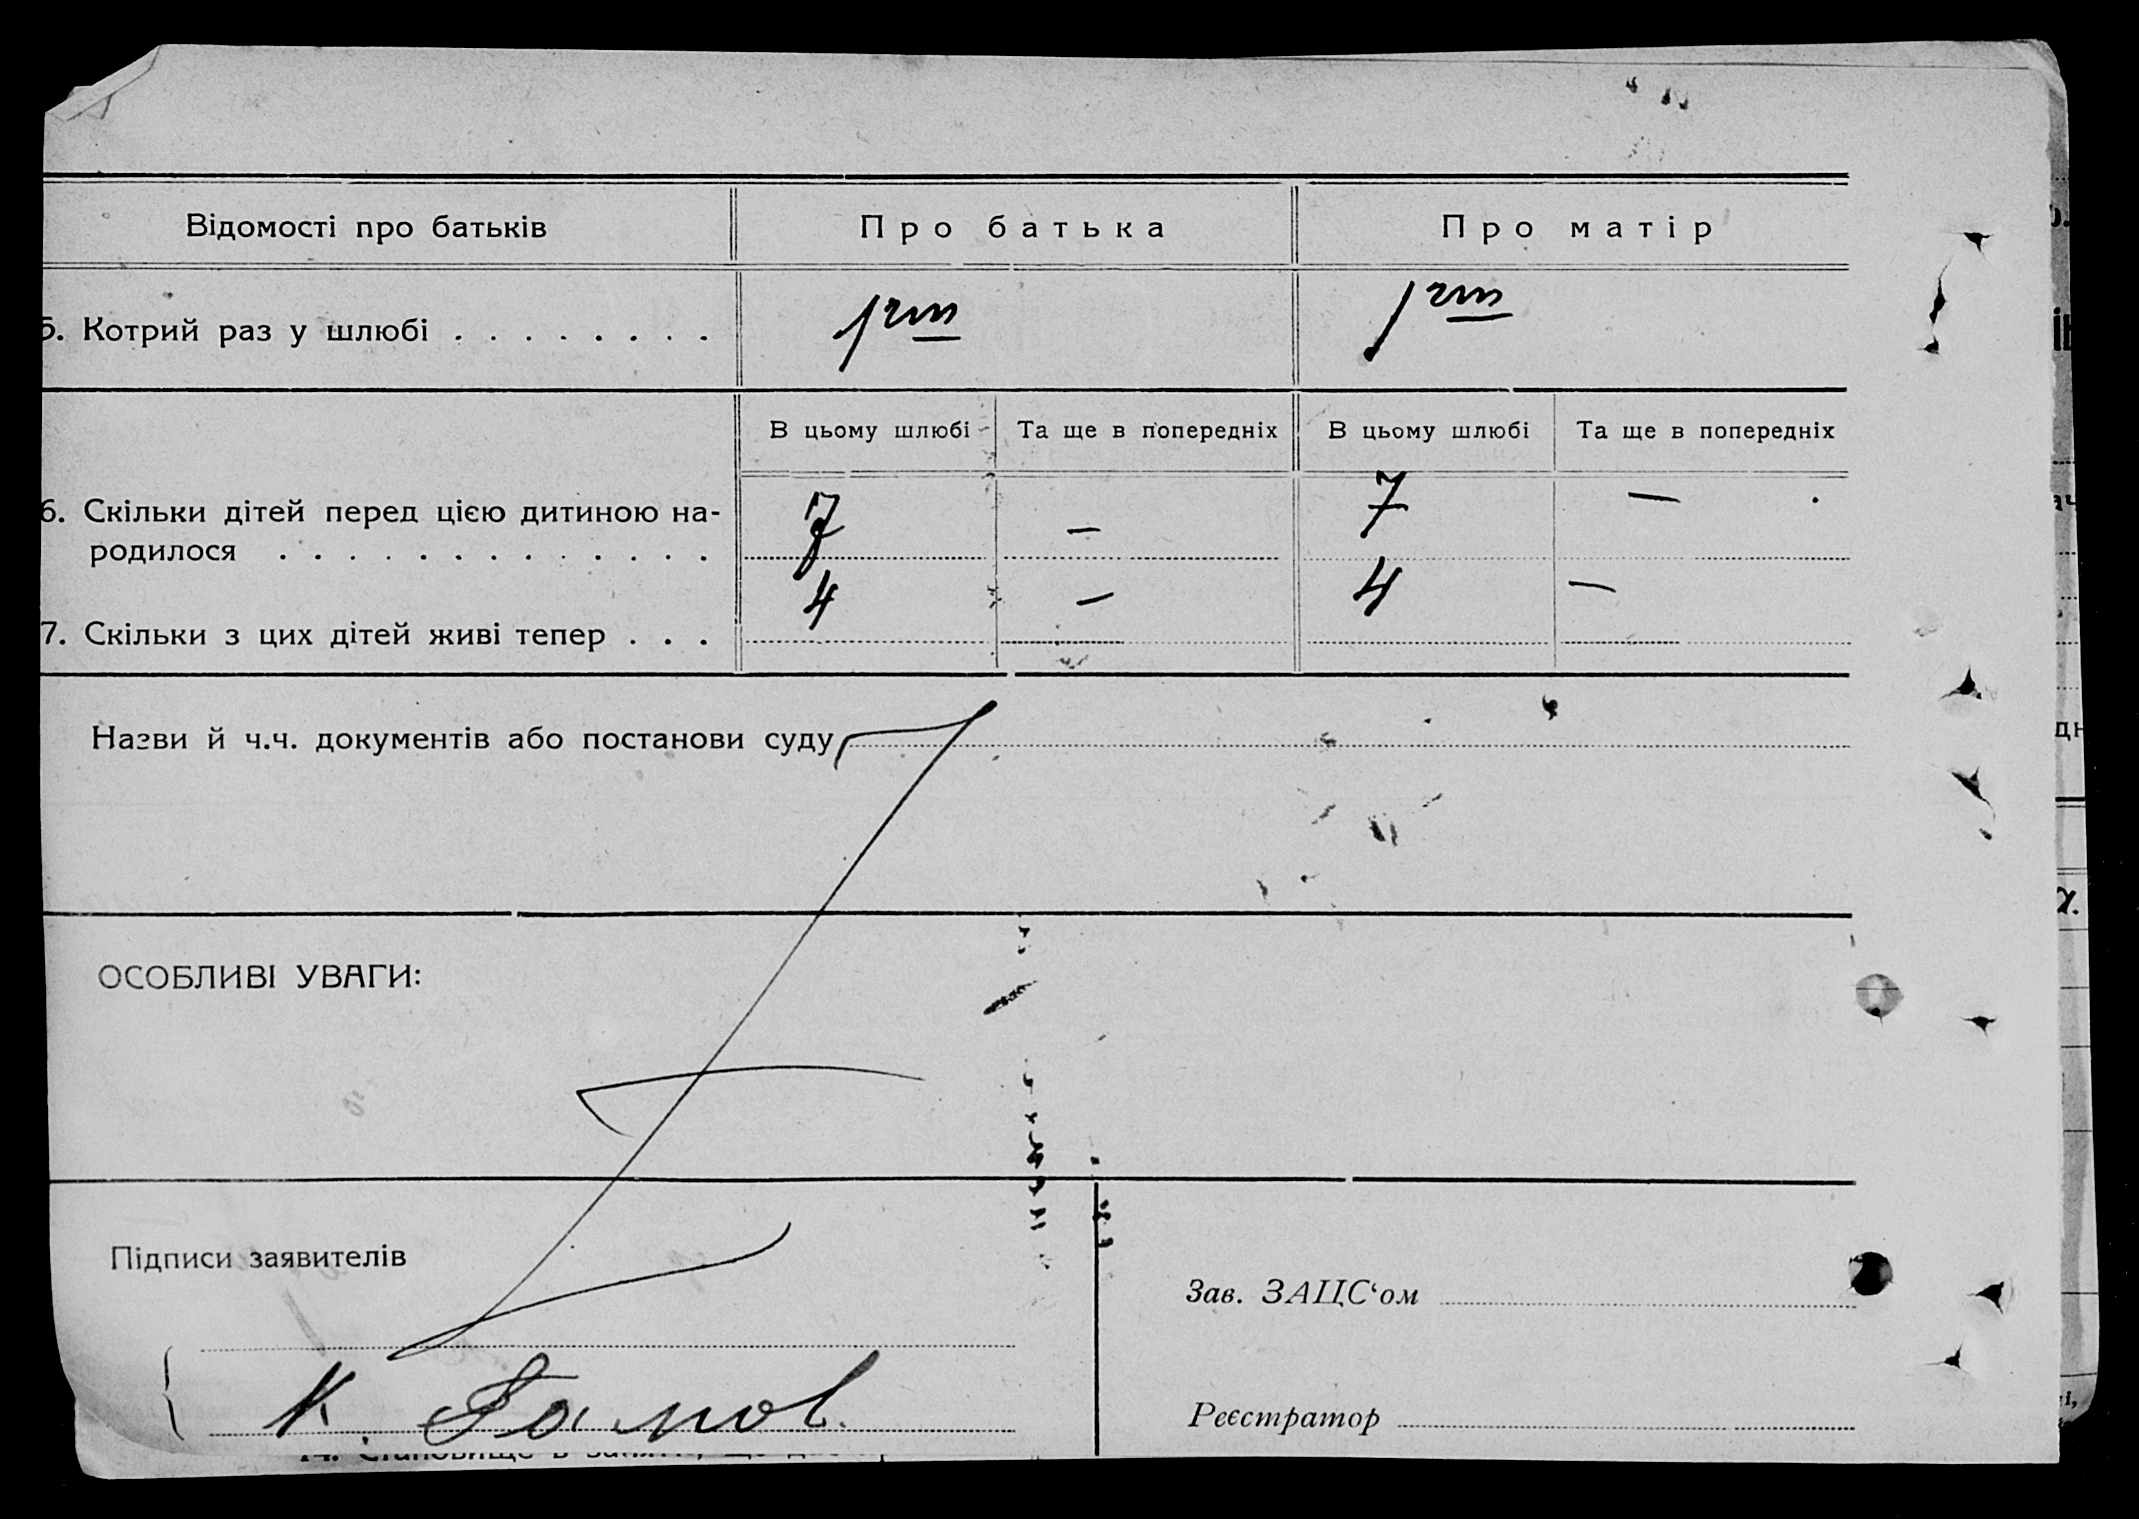 Відомості про батьків
Про батька
Про матір
5. Котрий раз у шлюбі . . . . . . . .
В цьому шлюбі
Та ще в попередніх
В цьому шлюбі
Та ще в попередніх
6. Скільки дітей перед цією дитиною на-
7 – 7 –
родилося . . . . . . . . . . . . .
7. Скільки з цих дітей живі тепер . . .
4 – 4 –
Назви й ч.ч. документів або постанови суду
ОСОБЛИВІ УВАГИ:
Підписи заявителів
Зав. ЗАЦС‘ом
Реєстратор